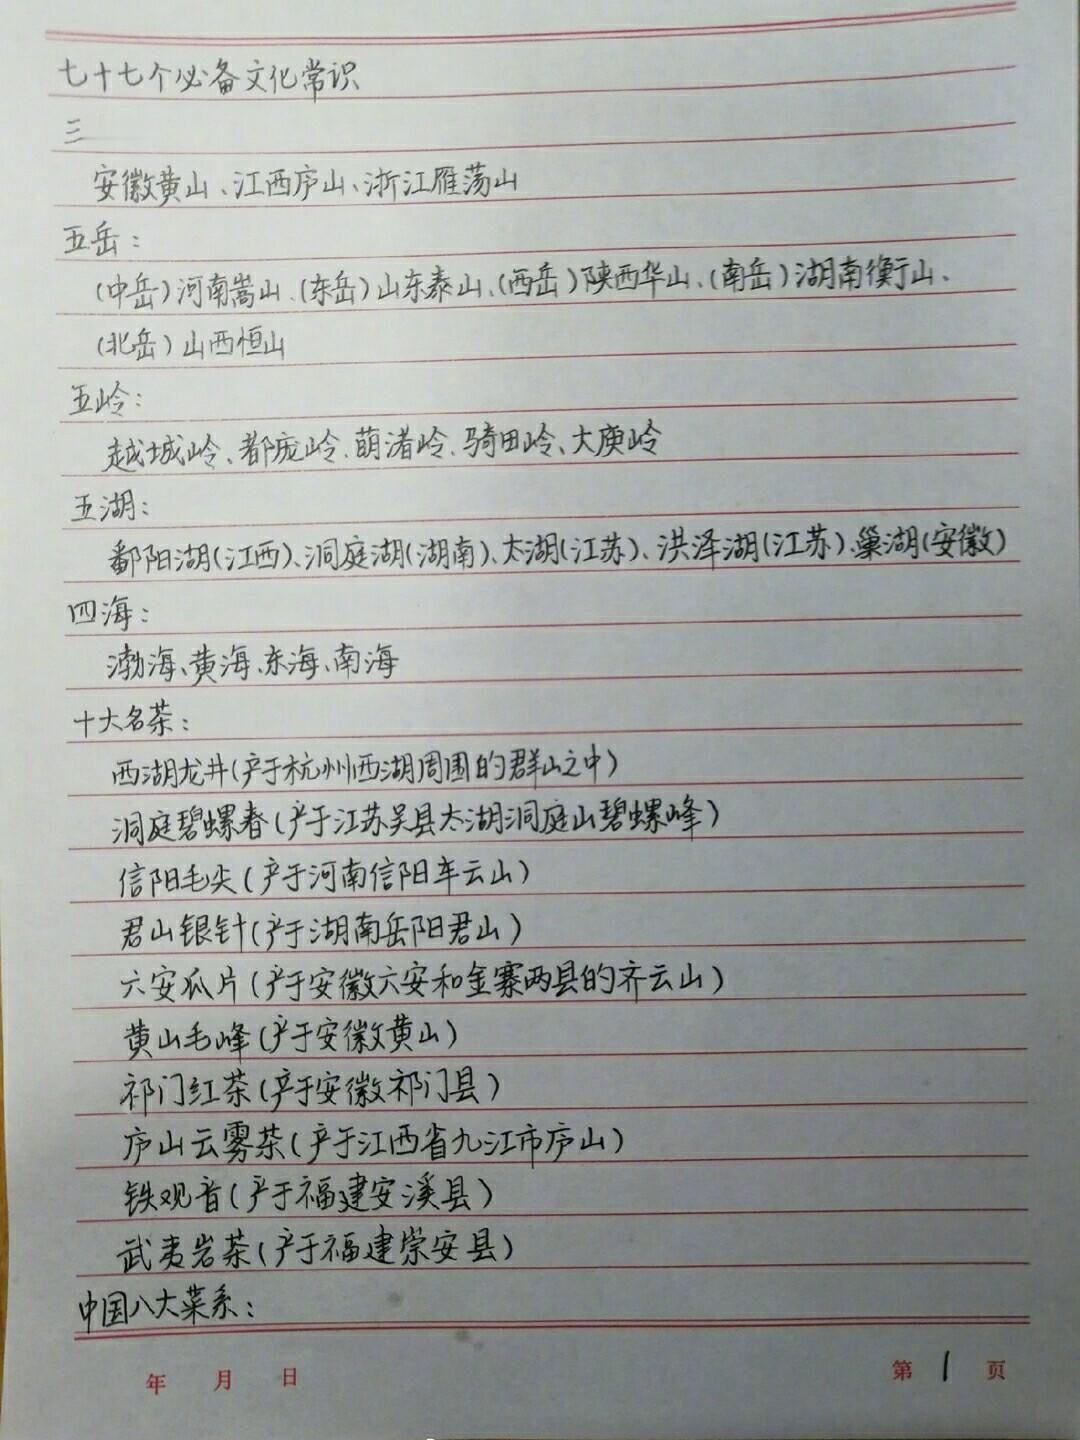 七十七个必备文化常识
三
安徽黄山、江西庐山、浙江雁荡山
五岳：
(中岳)河南嵩山、(东岳)山东泰山、(西岳)陕西华山、(南岳)湖南衡山、
(北岳)山西恒山
五岭：
越城岭、都庞岭、萌渚岭、骑田岭、大庾岭
五湖：
鄱阳湖(江西)、洞庭湖(湖南)、太湖(江苏)、洪泽湖(江苏)、巢湖(安徽)
四海：
渤海、黄海、东海、南海
十大名茶：
西湖龙井(产于杭州西湖周围的群山之中)
洞庭碧螺春(产于江苏吴县太湖洞庭山碧螺峰)
信阳毛尖(产于河南信阳车云山)
君山银针(产于湖南岳阳君山)
六安瓜片(产于安徽六安和金寨两县的齐云山)
黄山毛峰(产于安徽黄山)
祁门红茶(产于安徽祁门县)
庐山云雾茶(产于江西省九江市庐山)
铁观音(产于福建安溪县)
武夷岩茶(产于福建崇安县)
中国八大菜系：
年 月 日 第 1 页